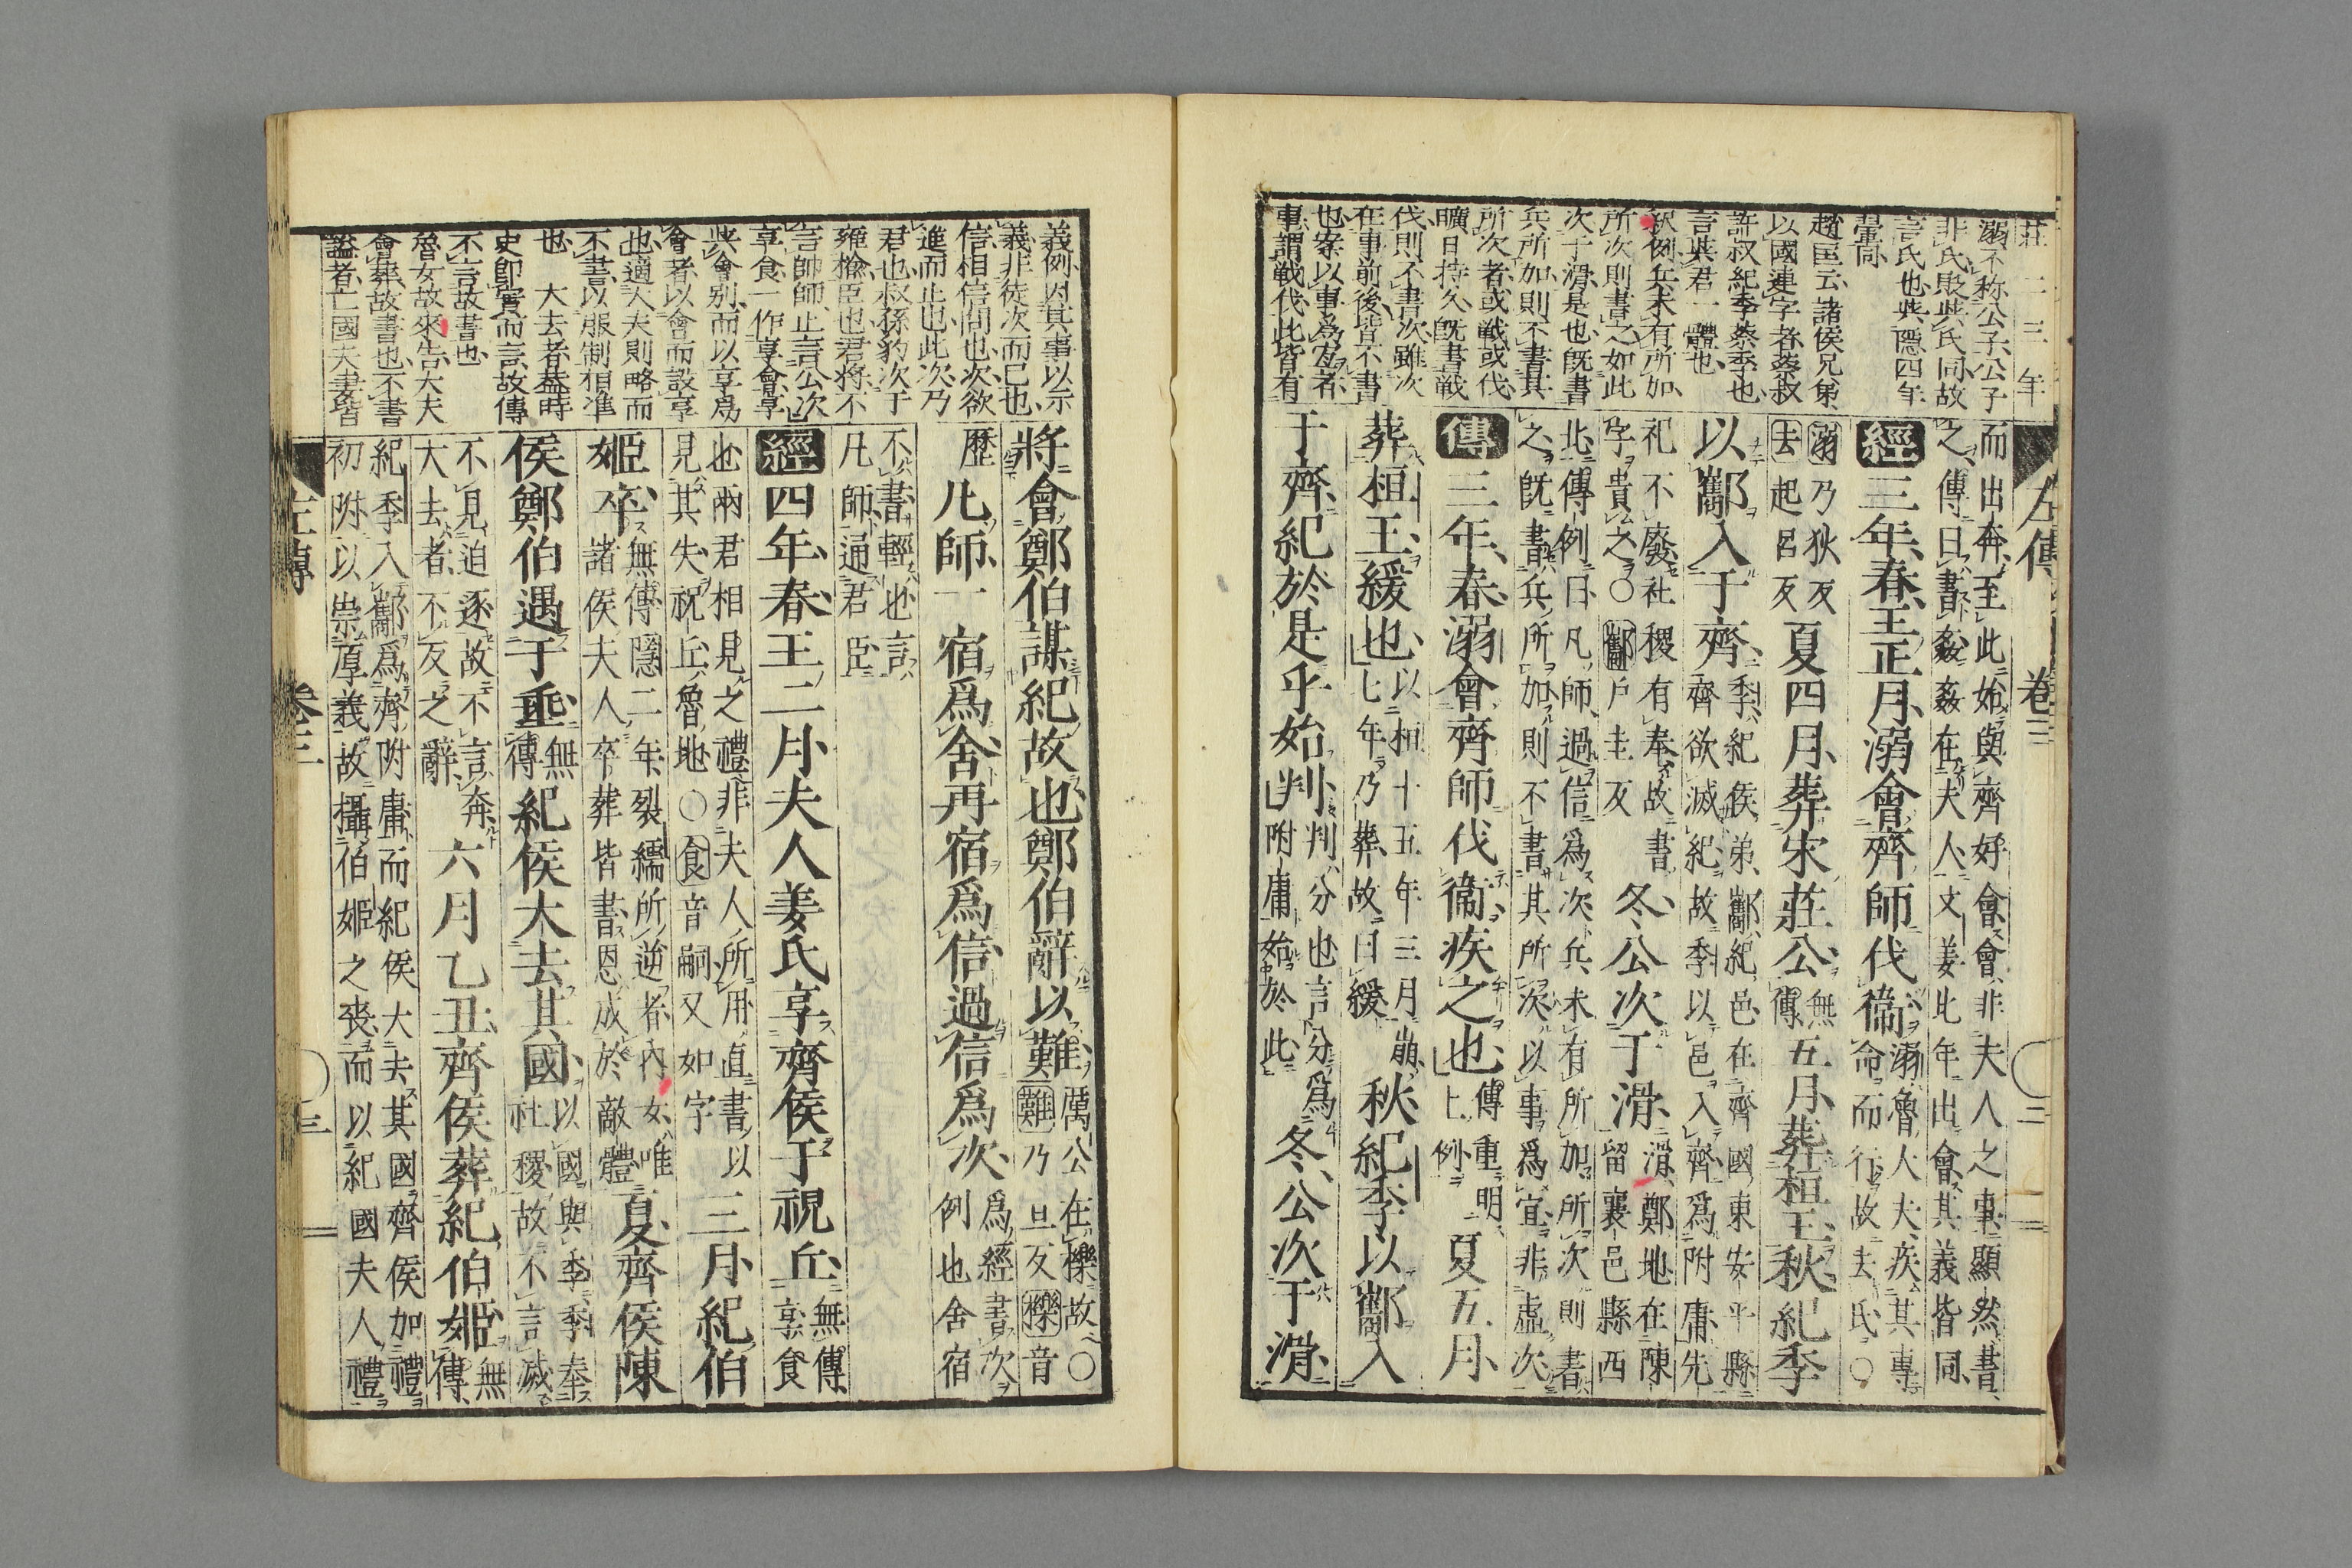 莊二三年
左傳 卷三
二
溺不称公子公子
非氏貶與氏同故
言氏也與隱四年
翬同
趙匡云諸侯兄弟
以國連字者蔡叔
許叔紀季蔡季也
言與君一體也
釈例兵未有所加
所次則書之如此
次于滑是也既書
兵所加則不書其
所次者或戦或伐
曠日持久既書戦
伐則不書次雖次
在事前後皆不書
也案以事爲宜者
事謂戦伐此皆有
而出奔至此始與齊好會會非夫人之事顯然書
之傳曰書姦姦在夫人文姜比年出會其義皆同
經三年春王正月溺會齊師伐衞溺魯大夫疾其專命而行故去氏○
溺乃狄反去起呂反夏四月葬宋莊公無傳五月葬桓王秋紀季
以酅入于齊季紀侯弟酅紀邑在齊國東安平縣齊欲滅紀故季以邑入齊爲附庸先
祀不廢社稷有奉故書字貴之○酅戶圭反冬公次于滑滑鄭地在陳留襄邑縣西
北傳例曰凡師過信爲次兵未有所加所次則書
之既書兵所加則不書其所次以事爲宜非虛次
傳三年春溺會齊師伐衞疾之也傳重明上例夏五月
葬桓王緩也以桓十五年三月崩七年乃葬故曰緩秋紀季以酅入
于齊紀於是乎始判判分也言分爲附庸始於此冬公次于滑
義例因其事以示
義非徒次而已也
信相信問也次欲
進而止也此次乃
君也叔孫豹次于
雍楡臣也君将不
言帥師止言公次
享食一作享會享
與會別而以享爲
會者以會而設享
也適大夫則略而
不書以服制相准
也 大去者蓋時
史即實而言故傳
不言故書也
魯女故來告大夫
會葬故書也不書
謚者亡國夫妻皆
將會鄭伯謀紀故也鄭伯辭以難厲公在櫟故○難乃旦反櫟音
歷凡師一宿爲舍再宿爲信過信爲次爲經書次例也舍宿
不書輕也言凡師通君臣
經四年春王二月夫人姜氏享齊侯于祝丘無傳享食
也兩君相見之禮非夫人所用直書以見其失祝丘魯地○食音嗣又如字三月紀伯
姬卒無傳隱二年裂繻所逆者內女唯諸侯夫人卒葬皆書恩成於敵體夏齊侯陳
侯鄭伯遇于垂無傳紀侯大去其國以國與季季奉社稷故不言滅
不見迫逐故不言奔大去者不反之辭六月乙丑齊侯葬紀伯姬無傳
紀季入酅爲齊附庸而紀侯大去其國齊侯加禮
初附以崇厚義故攝伯姬之喪而以紀國夫人禮
左傳 卷三
三